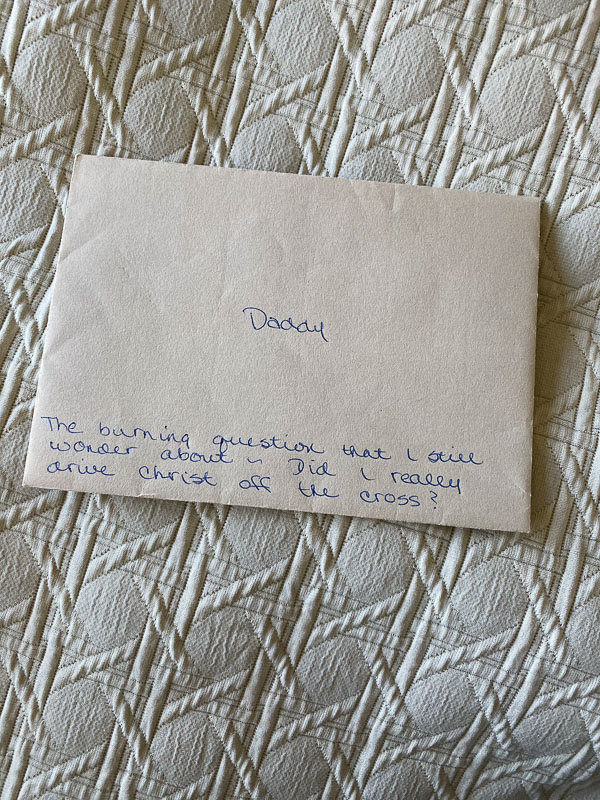 Daddy
The burning question that I still
wonder about ~ Did I really
drive Christ off the cross?